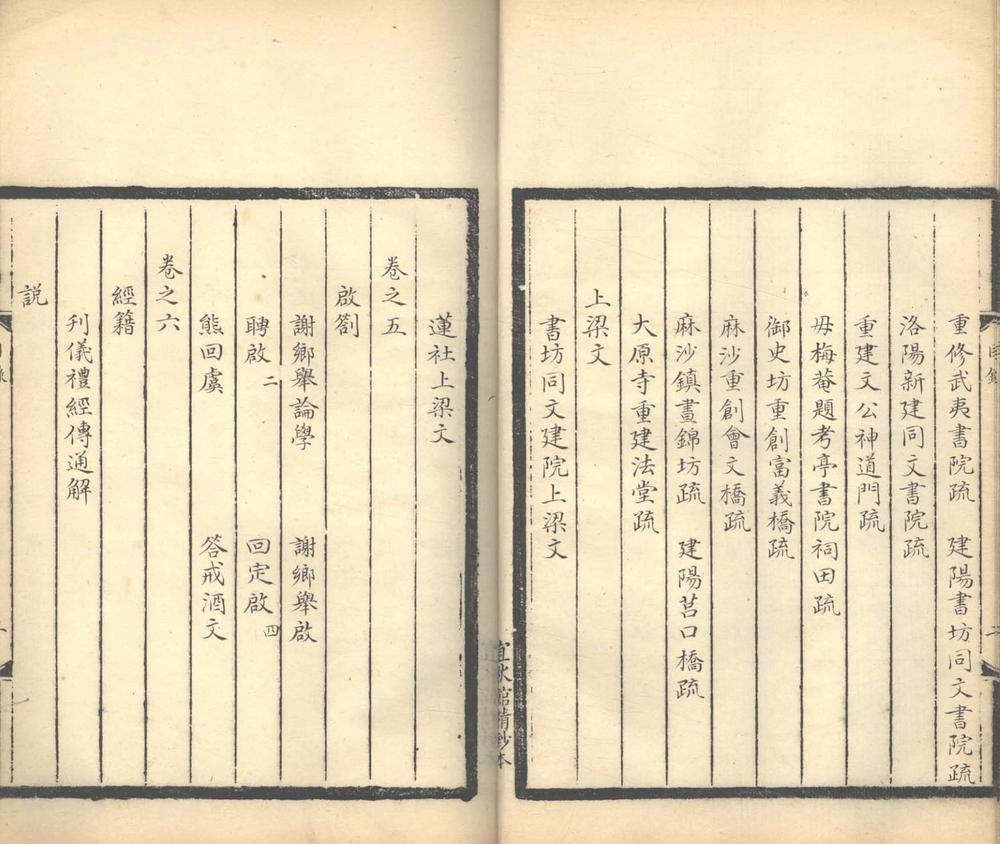 重修武夷書院疏　建陽書坊同文書院疏
洛陽新建同文書院疏
重建文公神道門疏
毋梅菴題考亭書院祠田疏
御史坊重創富義橋疏
麻沙重創會文橋疏
麻沙鎮晝錦坊疏　建陽莒口橋疏
大原寺重建法堂疏
上梁文
書坊同文建院上梁文
蓮社上梁文
卷之五
啟劄
謝鄉舉論學　謝鄉舉啟
聘啟二　回定啟四
熊回虞　答戒酒文
卷之六
經籍
刊儀禮經傳通解
説
宜秋館精鈔本